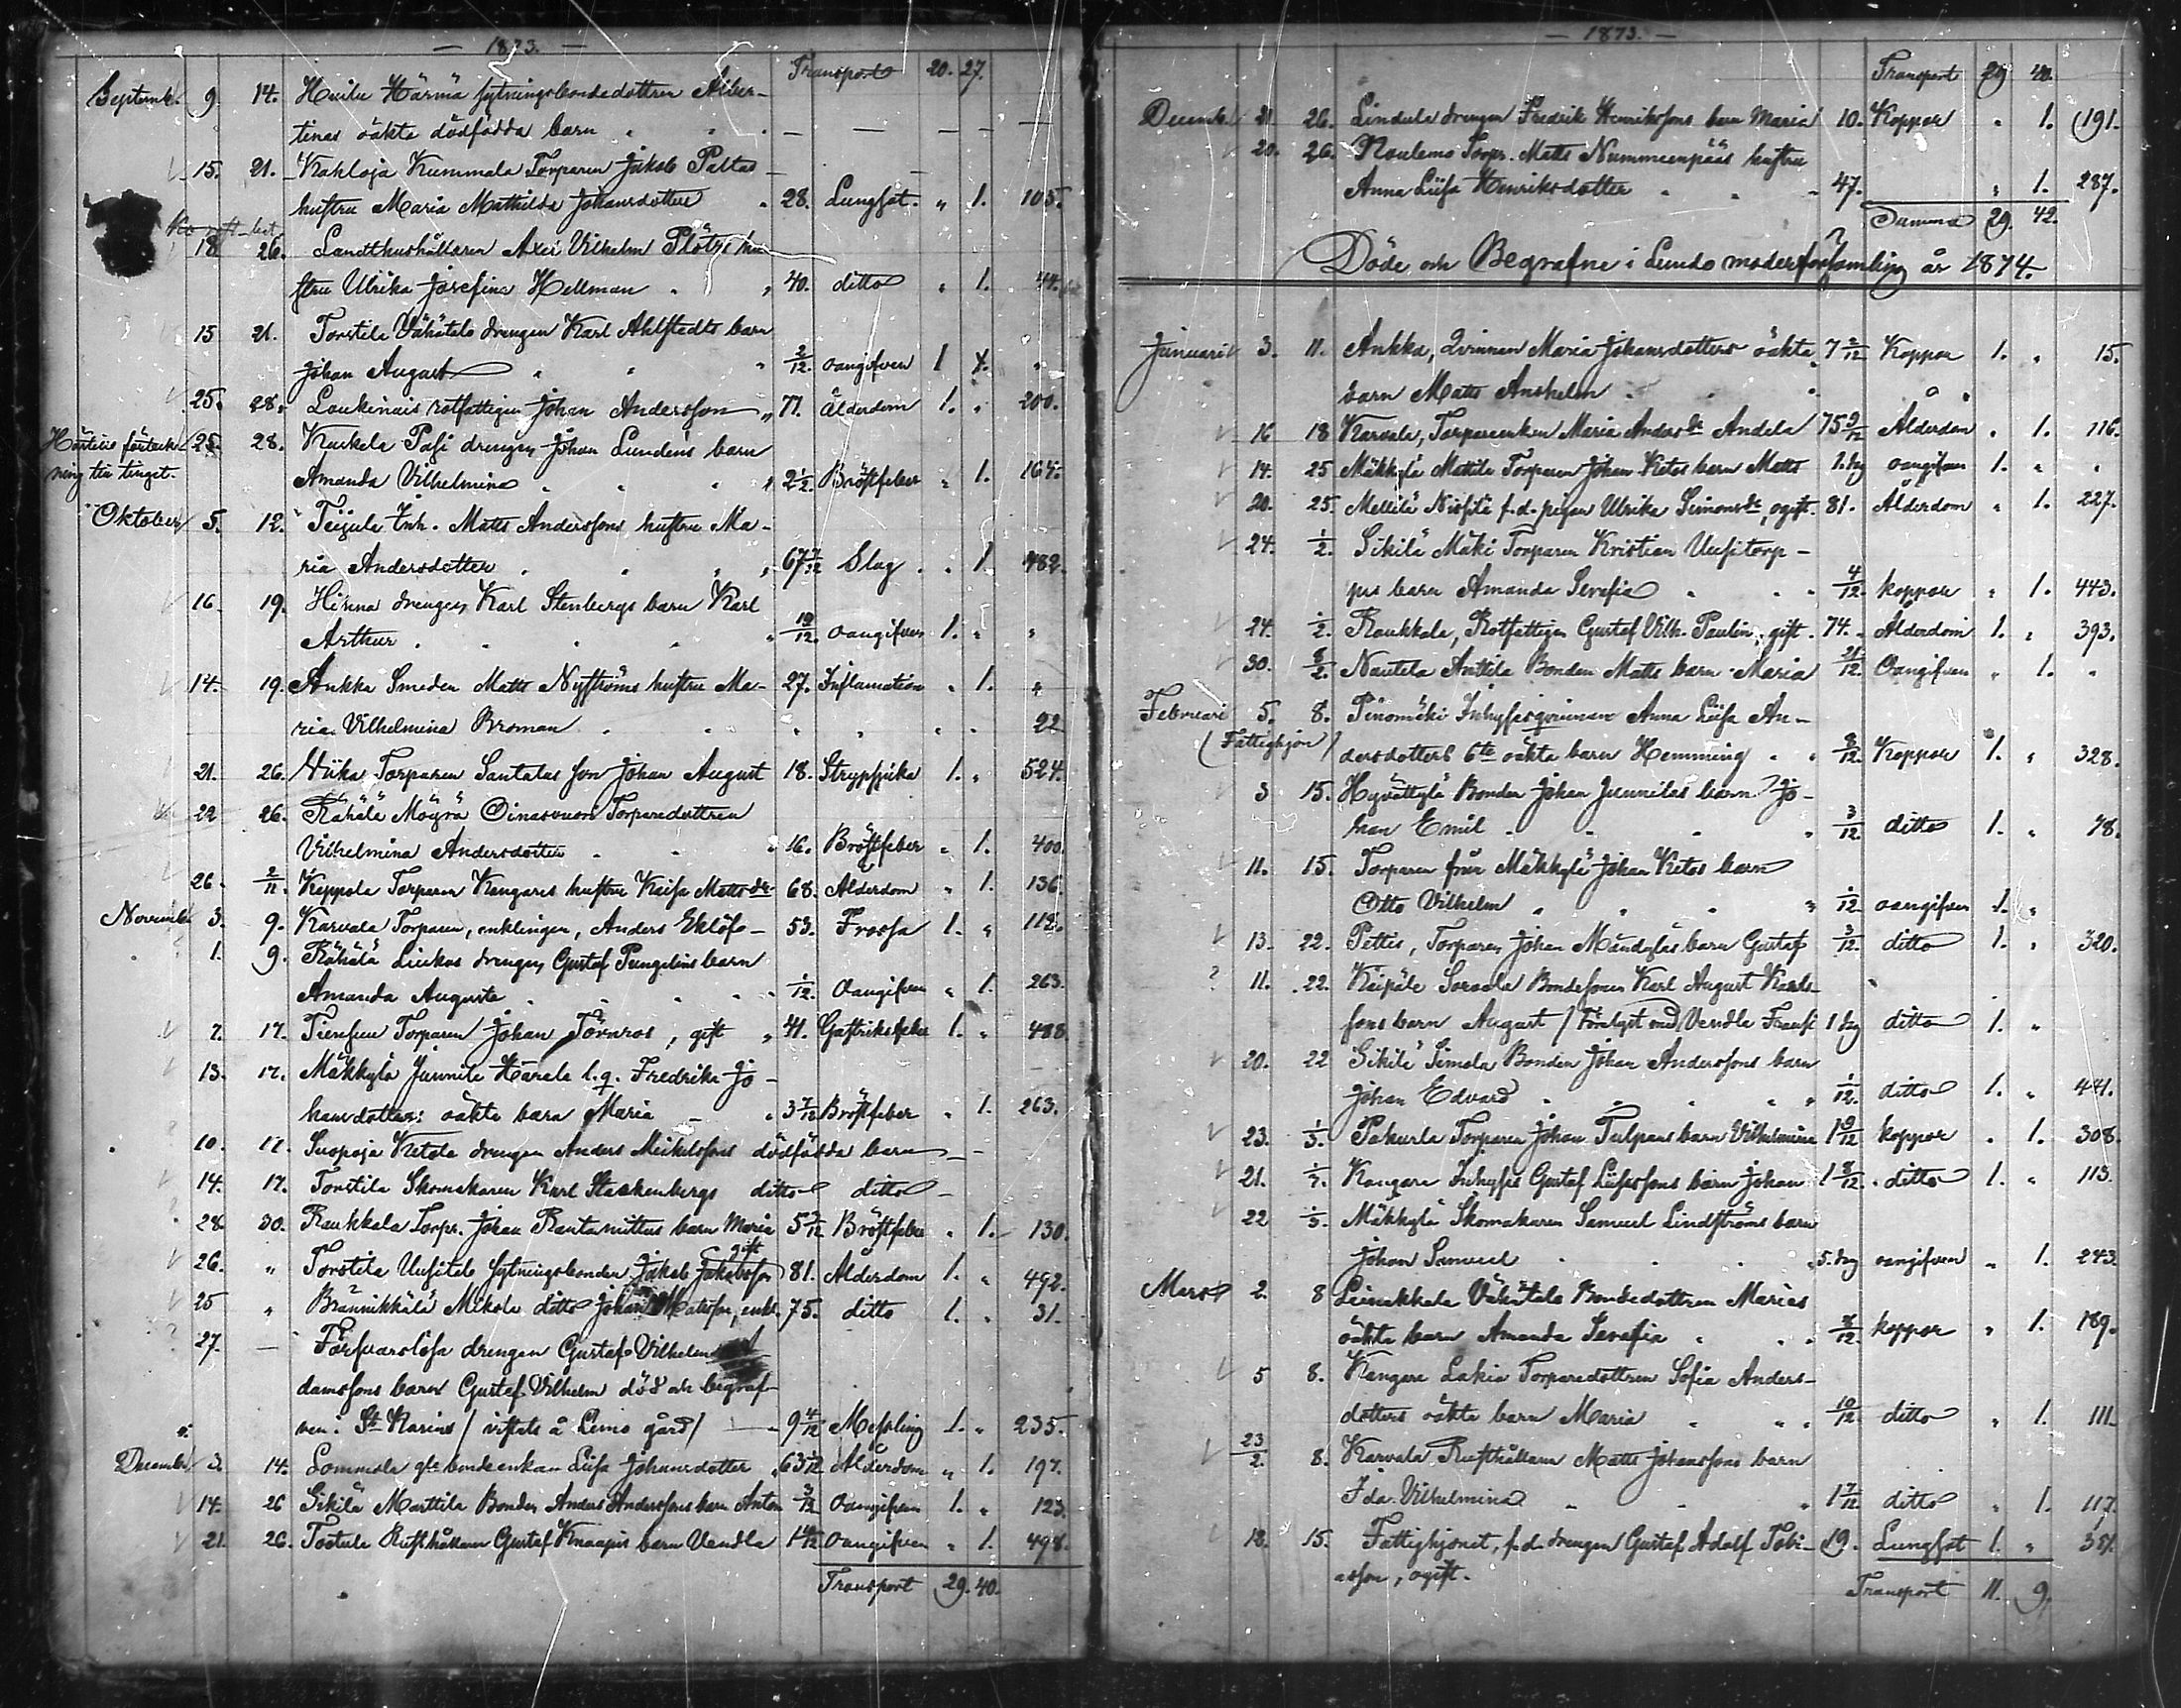 — 1873. —
Transport 20. 27.
Septemb. 9. 14. Huilu Härmä sytningsbondedottren Alber-
tinas oäkta dödfödda barn " " . — — — — —
15. 21. Kahloja Kummala Torparen Jakob Paltas
hustru Maria Mathilda Johansdotter " 28. Lungsot. " 1. 105.
18 26. Landthushållaren Axel Vilhelm hu
stru Ulrika Josefina Hellman . " 40. ditto " 1. 44.
15 21. Torstila Vähätalo drengen Karl Ahlstedts barn
Johan August " " " 2/12. oangifven 1 "
25. 28. Laukinais rotfattigen Johan Andersson " 77. Ålderdom 1. " 200.
25. 28. Kuckela Pasi drengen Johan Lundéns barn
ning till tinget. Amanda Vilhelmina " " " 2 1/2. Bröstfeber " 1. 164.
Oktober 5. 12. Teijula Inh. Matts Anderssons hustru Ma-
ria Andersdotter . " " 67 7/12 Slag . " 1. 482.
16. 19. Hirma drengen Karl Stenbergs barn Karl
Arthur . . " " 10/12. oangifven 1. " "
14. 19. Ankka Smeden Matts Nyströms hustru Ma- 27. Inflamation " 1. "
ria Vilhelmina Broman . " " " " 22
21. 26. Torparen Santalas son Johan August 18. Strypsjuka 1. " 524.
22 26. Rähälä Moyrä Oinasvuori Torparedottren
Vilhelmina Andersdotter . " " 16. Bröstfeber " 1. 400.
26. 2/11. Keppola Torparen Kangares hustru Kaisa Mattsdr 68. Ålderdom " 1. 136.
Novemb. 3. 9. Karvala Torparen, enklingen, Anders Eklöfs — 53. Frossa 1. " 112.
1. 9. Rähälä Liukas drengen Gustaf Pungelins barn
Amanda Augusta . " " " 1/12. Oangifven " 1. 263.
7. 17. Torparen Johan Törnros, gift " 41. Gastriksfeber 1. " 488.
13. 17. Mäkkylä Junnila Härala l.q. Fredrika Jo-
hansdotters oäkta barn Maria — " 3 7/12 Bröstfeber " 1. 263.
10. 17. Suopoja Ketola drengen Anders Mickelssons dödfödda barn — —
14. 17. Torstila Skomakaren Karl Stackenbergs ditto ditto —
28 30. Raukkala Torpr. Johan Rautanittus barn Maria 5 2/12 Bröstfeber " 1. 130.
gift
26. " Torstila Uusitalo sytningsbonden Jakob Jakobsson 81. Ålderdom 1. " 492.
25 " Brännikkälä Mikola ditto Johan Matsson, enkl. 75. ditto 1. " 31.
27. — Försvarslösa drengen Gustaf Vilhelm A
damssons barn Gustaf Vilhelm död och begraf-
ven i St Karins / vistats å Lemo gård / — 9 4/12 Messling 1. " 235.
Decemb. 3. 14. Sommola gle bondeenkan Liisa Johansdotter " 63 1/12 Ålderdom " 1. 197.
14. 26 Sikilä Marttila Bonden Anders Anderssons barn Anton 3/12 Oangifven 1. " 123.
21. 26. Tostula Rusthållaren Gustaf Knaapis barn Vendla 1 4/12 Oangifven " 1. 498.
Transport 29. 40.
— 1873. —
Transport 29 40.
Decemb. 21. 26. Lindula drengen Fredrik Henrikssons barn Maria 10. Koppor " 1. 191.
20. 26. Raulemo Torpr. Matts Nummenpääs hustru
Anna Liisa Henriksdotter . " " 47. " 1. 287.
Summa 29. 42.
Döde och Begrafne i Lundo moderförsamling år 1874.
Januari 3. 11. Ankka, Qvinnan Maria Johansdotters oäkta 7 2/12 Koppor 1. " 15.
barn Matts Anshelm . " " " "
16 18 Karvala, Torpareenkan Maria Andersdr Andela 75 9/12 Ålderdom " 1. 116.
14. 25 Mäkkylä Mattila Torparen Johan Ketos barn Matts 1. dag oangifven 1. " "
20. 25. Mellilä Nissilä f.d. pigan Ulrika Simonsdr, ogift. 81. Ålderdom " 1. 227.
24. 1/2. Sikilä Mäki Torparen Kristian Uusitorp-
pas barn Amanda Serafia " " " 4/12. koppor " 1. 443.
24. 1/2. Raukkala, Rotfattigen Gustaf Vilh. Paulin, gift. 74. " Ålderdom 1. " 393.
30. 8/2. Nautela Anttila Bonden Matts barn Maria 21/12. Oangifven " 1. "
Februari 5. 8. Pinomäki Inhysesqvinnan Anna Liisa An-
(Fattighjon) dersdotters 6te oäkta barn Hemming " " 8/12. Koppor 1. " 328.
3 15. Hyvättylä Bonden Johan Junnilas barn Jo-
han Emil . " " 3/12. ditto 1. " 78.
11. 15. Torparen från Mäkkylä Johan Ketos barn
Otto Vilhelm " " " " 1/12 oangifven 1. "
13. 22. Pettis, Torparen Johan barn Gustaf 3/12. ditto 1. " 320.
? 11. 22. Kaipale Bondesonen Karl August Karls-
sons barn August / Förelyst med Vendla 1 dag ditto 1. "
20. 22 Sikilä Simola Bonden Johan Anderssons barn
Johan Edvard . " " " " 1/12. ditto 1. " 441.
23. 1/3. Pakurla Torparen Johan Tulpans barn Vilhelmina 1 9/12 koppor " 1. 308.
21. 1/3. Kangare Inhyses Gustaf barn Johan 1 8/12 ditto 1. " 113.
22 1/3. Mäkkylä Skomakaren Samuel Lindströms barn
Johan Samuel . " " " 5. dag oangifven " 1. 243
Mars 2. 8 Leinakkala Vähätalo Bondedottren Marias
oäkta barn Amanda Serafia " " 8/12. koppor " 1. 189.
5 8. Kangare Lakia Torparedottren Sofia Anders-
dotters oäkta barn Maria " " 10/12. ditto " 1. 111.
23/2. 8. Karvala Rusthållaren Matts Johanssons barn
Ida Vilhelmina " " " 1 7/12 ditto " 1. 117.
15. Fattighjonet, f.d. drengen Gustaf Adolf Tobi- 19. Lungsot 1. "
asson, ogift.
Transport 11. 9.